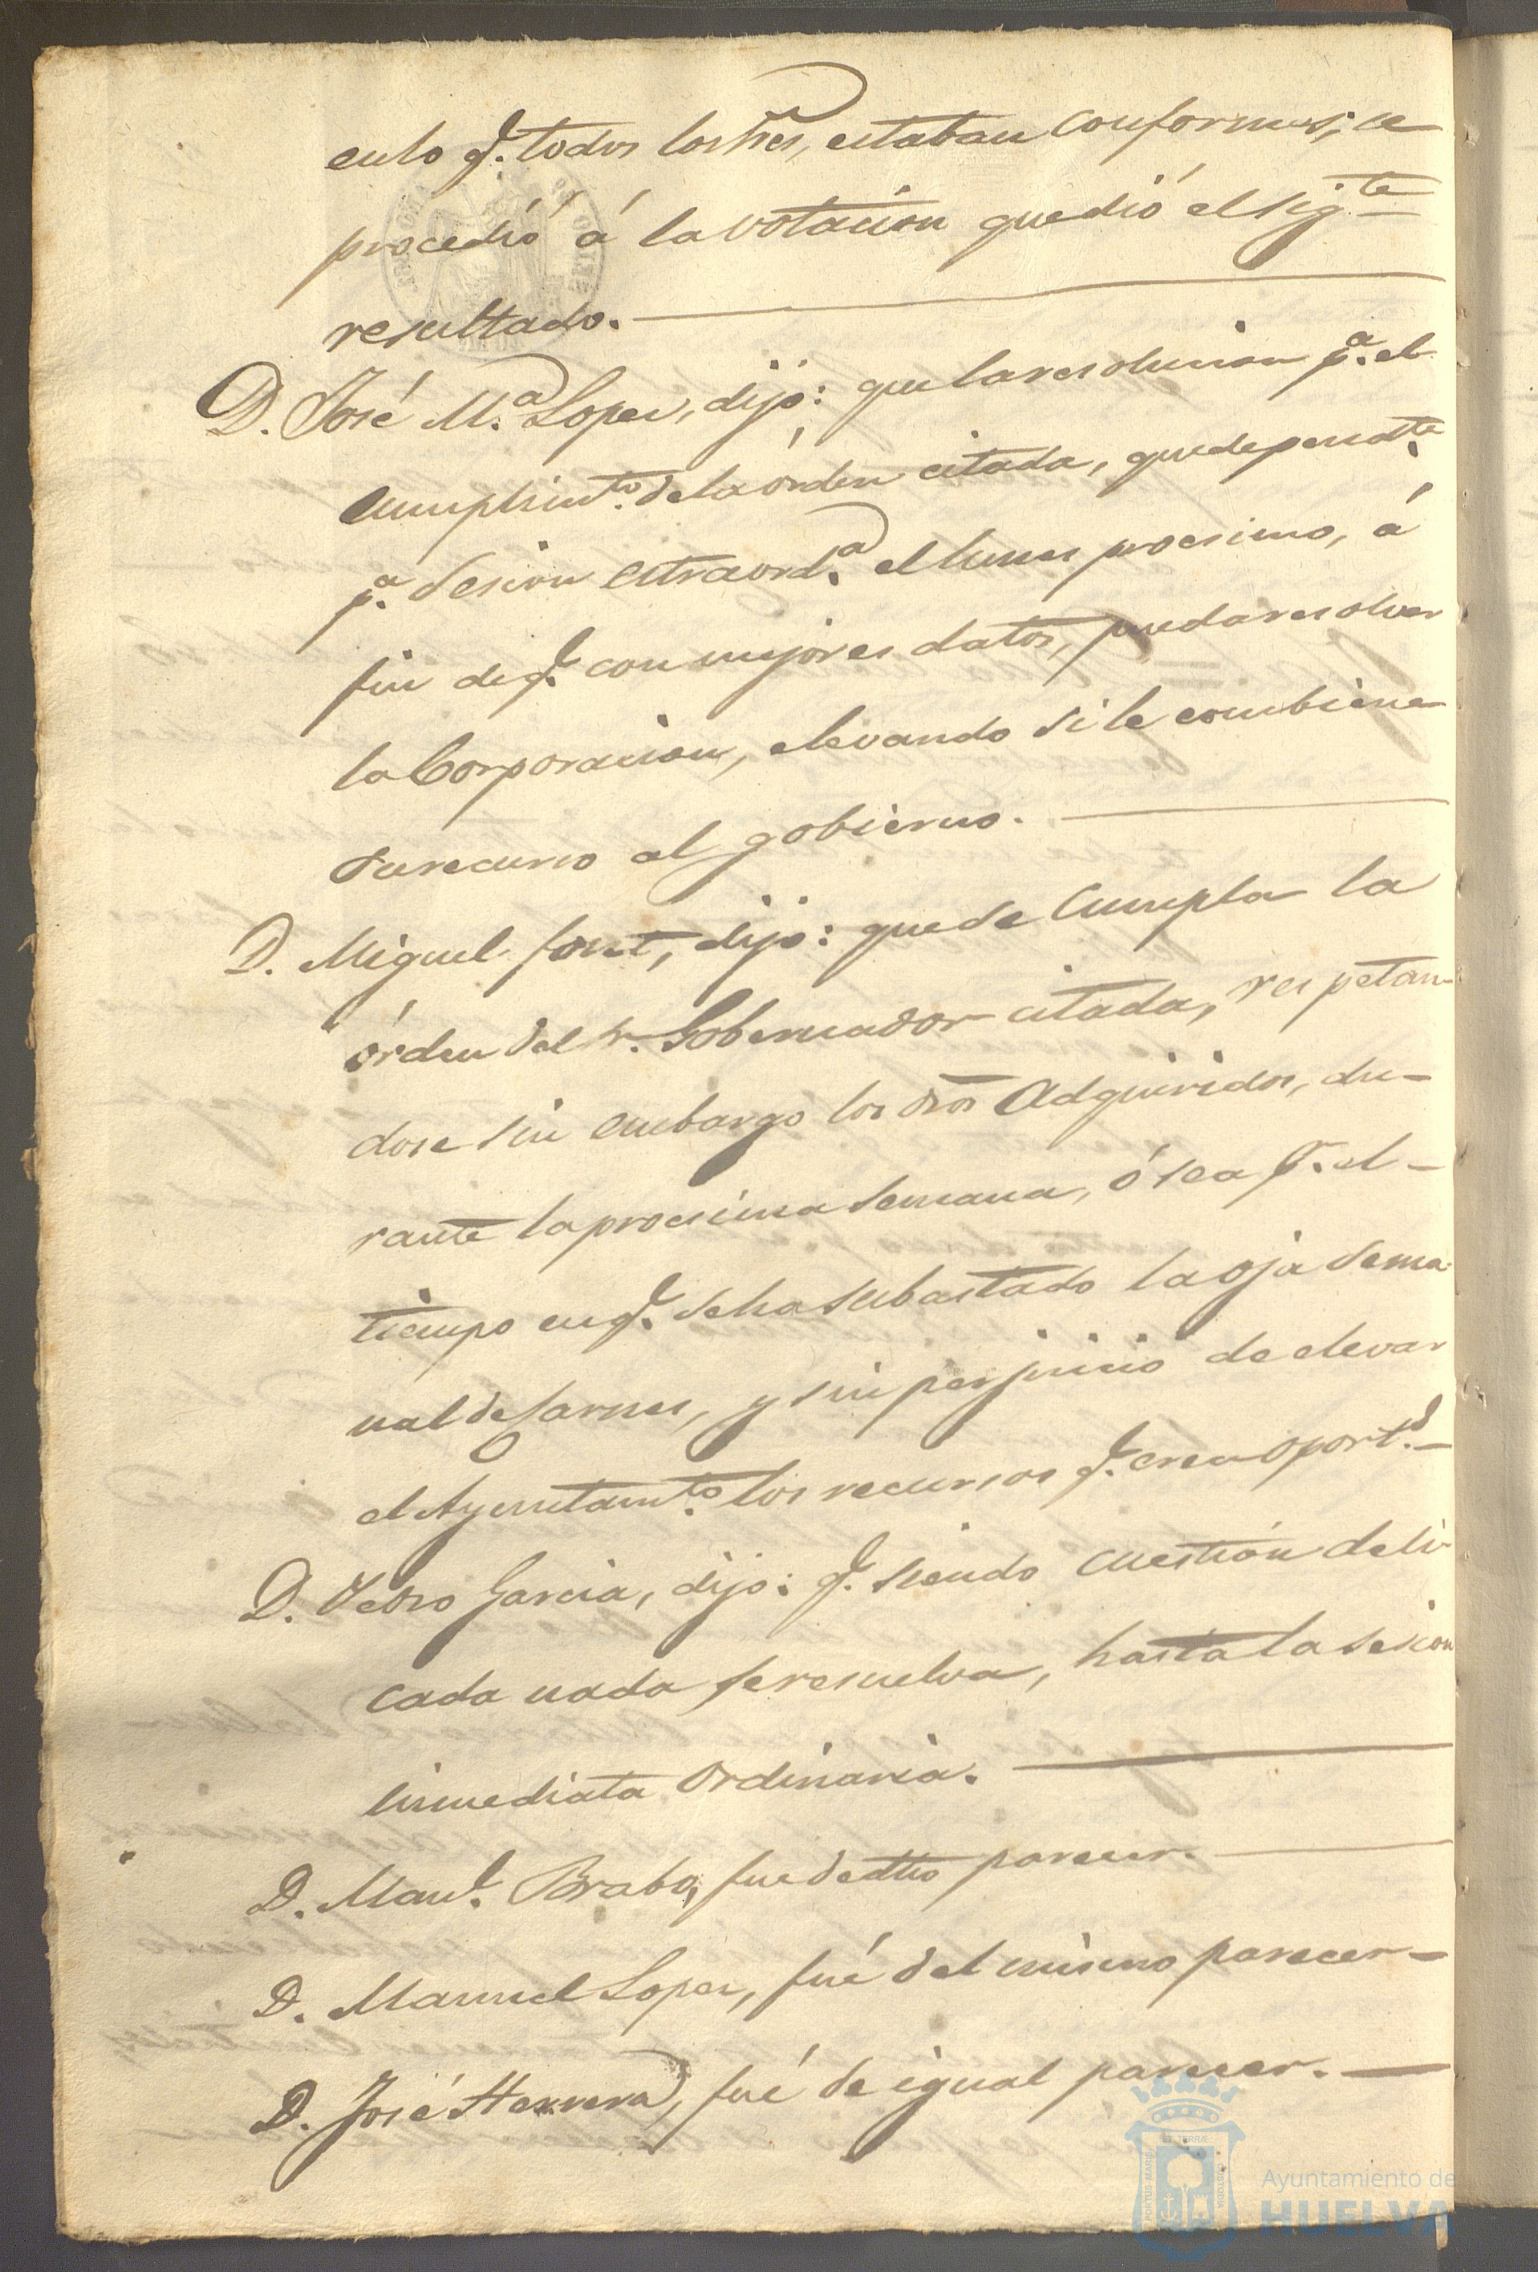 en lo q.e todos los Sres, estaban conformes, se
procedió á la votacion que dió el sig.te
resultado.
D. José M.a Lopez, dijo: que la resolucion p.a el
cumplimt.o de la órden citada, quede pend.te
p.a sesion estraord.a el lunes procsimo, á
fin de q.e con mejores datos, pueda resolver
la Corporacion, elevando si le combiene
su recurso al gobierno.
D. Miguel font, dijo: que se cumpla la
órden del Sr. Gobernador citada, respetan
dose sin embargo los dros Adquiridos, du-
rante la procsima semana, ó sea p.r el
tiempo en q.e se ha subastado la oja sema
nal de Carnes, y sin perjuicio de elevar
el Ayuntamt.o los recursos q.e crea oport.s
D. Pedro Garcia, dijo: q.e siendo cuestión deli
cada nada se resuelva, hasta la sesion
inmediata ordinaria.
D. Man.l Brabo, fue de dho parecer.
D. Manuel Lopez, fué del mismo parecer
D. José Herrera, fué de igual parecer.
Ayuntamiento de
HUELVA